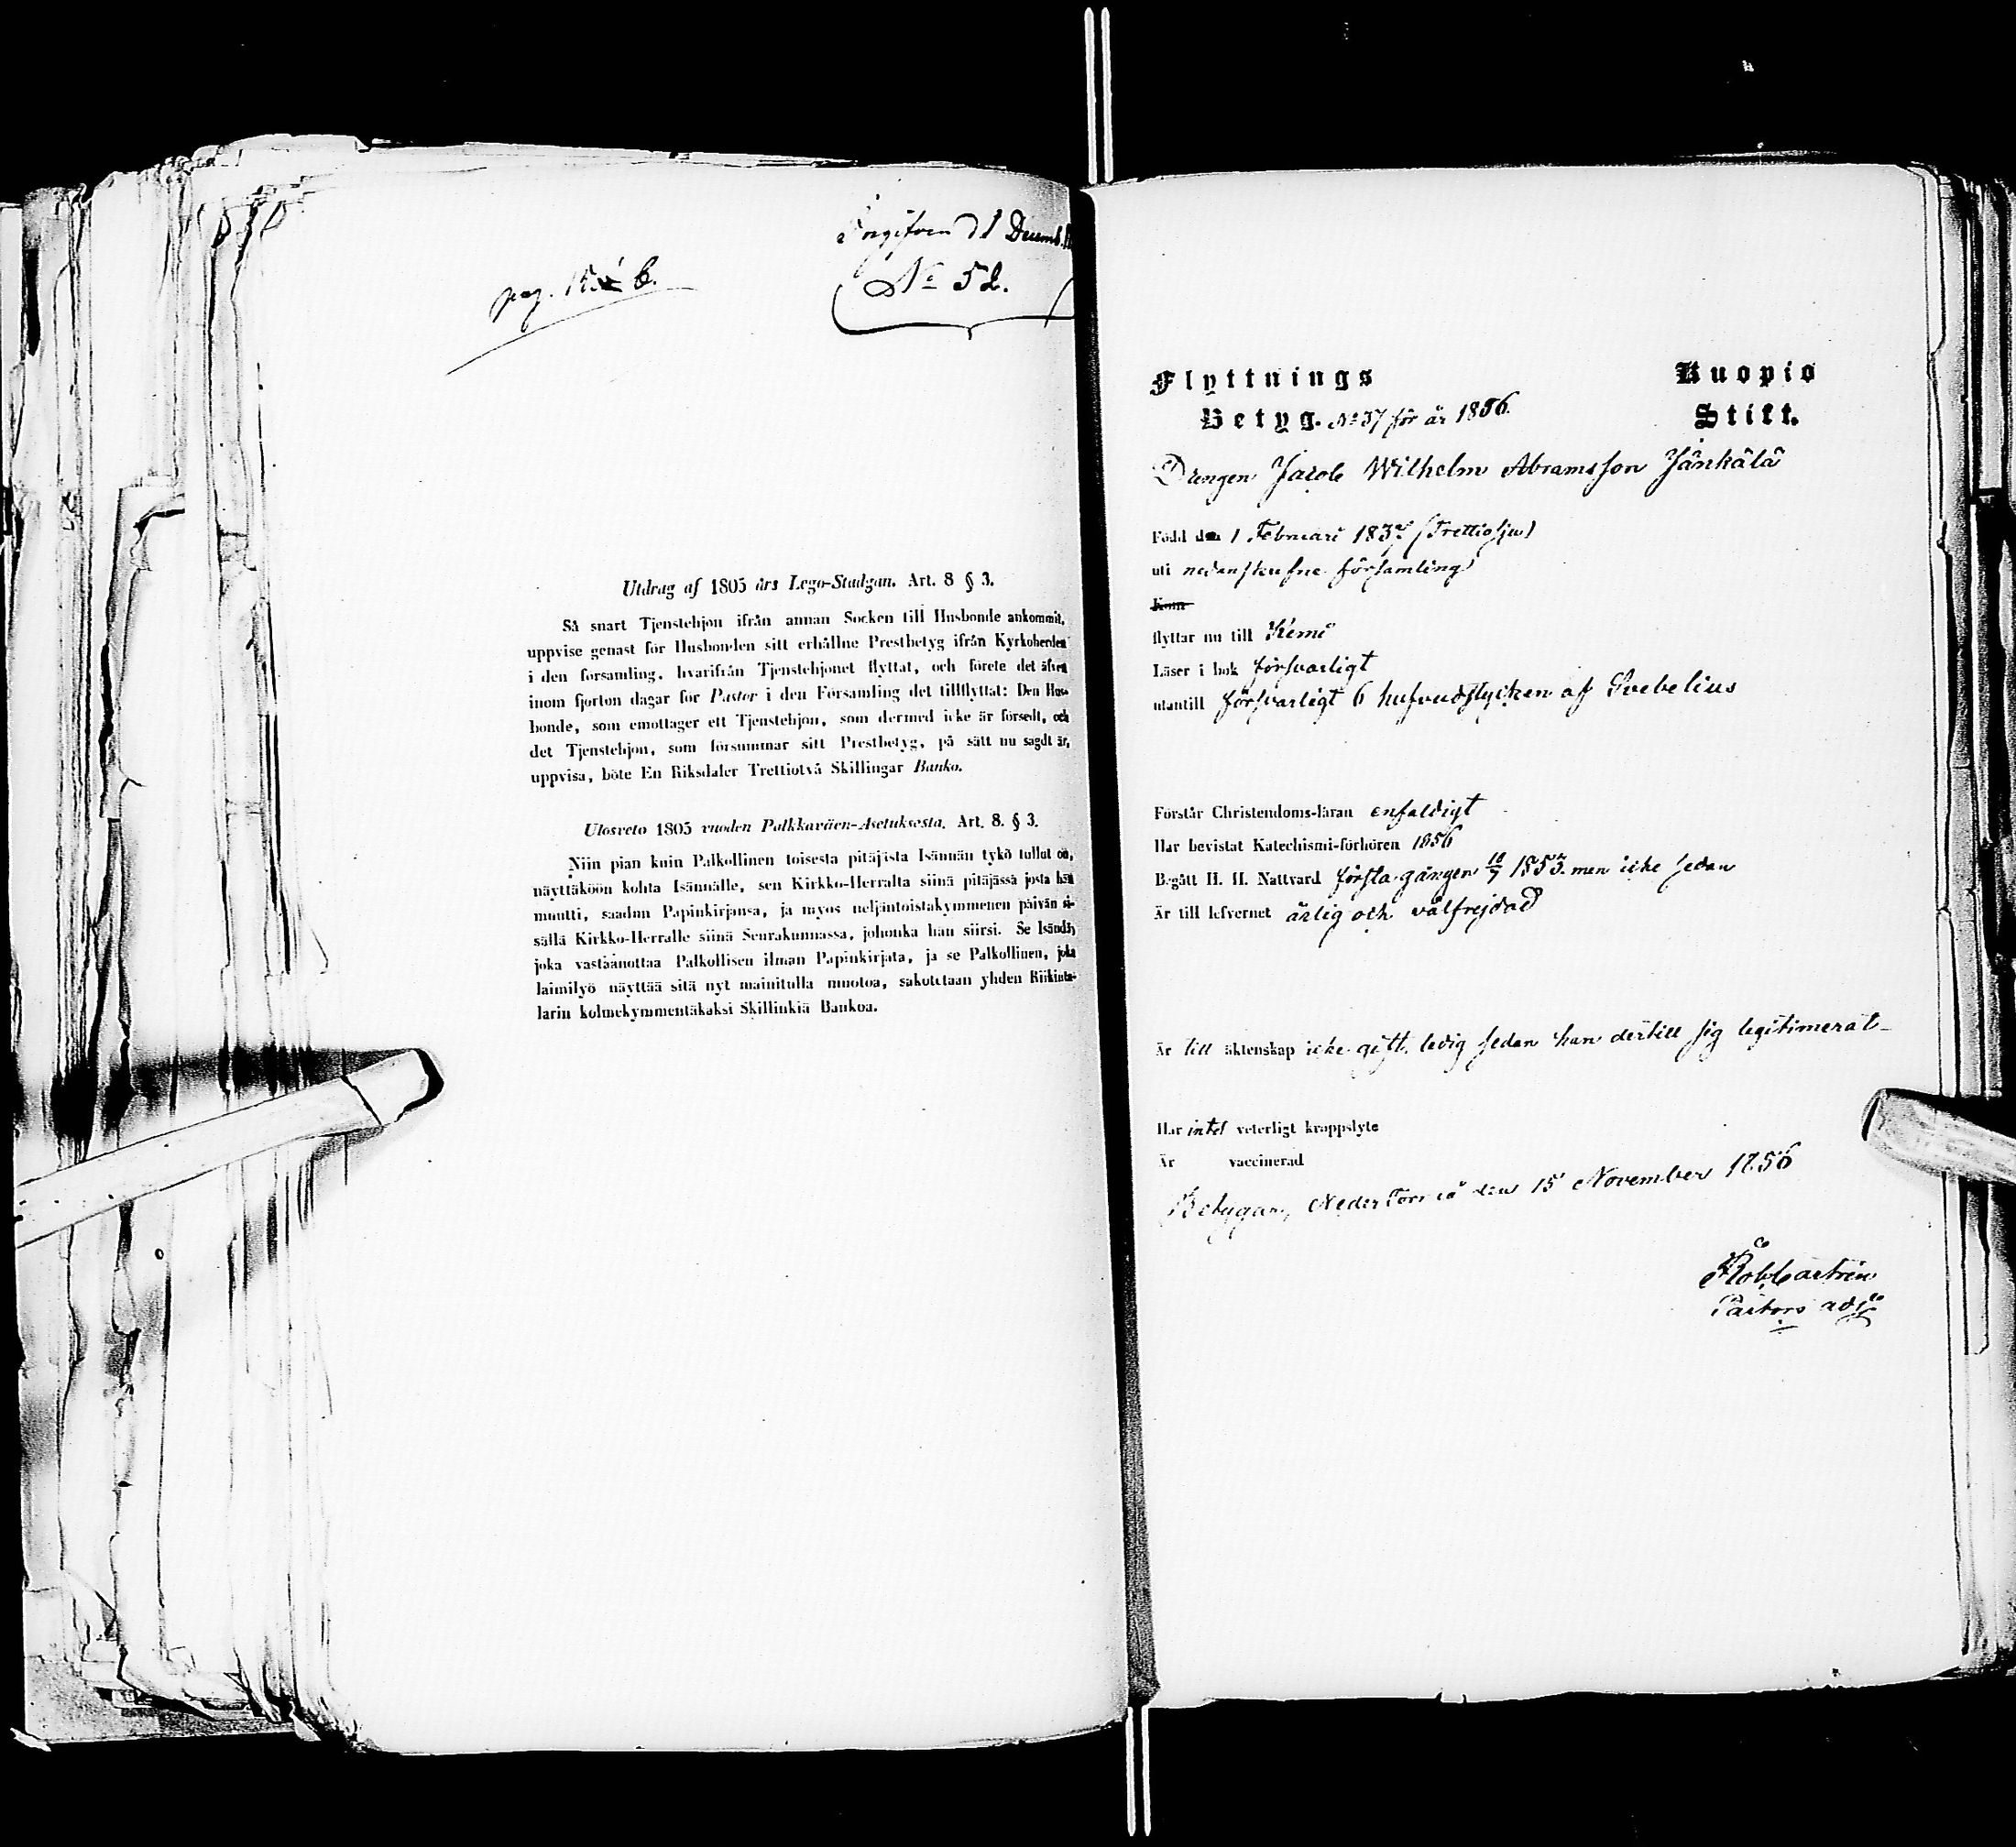 Ingifven d 1 Decemb.
pag. 15 b.
No 52.
Utdrag af 1805 års Lego-Stadgan. Art. 8 § 3.
Så snart Tjenstehjon ifrån annan Socken till Husbonde ankommit,
uppvise genast för Husbonden sitt erhållne Prestbetyg ifrån Kyrkoherden
i den församling, hvarifrån Tjenstehjonet flyttat, och förete det äfven
inom fjorton dagar för Pastor i den Församling det tillflyttat: Den Hus-
bonde, som emottager ett Tjenstehjon, som dermed icke är försedt, och
det Tjenstehjon, som försummar sitt Prestbetyg, på sätt nu sagdt är,
uppvisa, böte En Riksdaler Trettiotvå Skillingar Banko.
Ulosveto 1805 vuoden Palkkaväen-Asetuksesta. Art. 8. § 3.
Niin pian kuin Palkollinen toisesta pitäjästa Isännän tykö tullut on,
näyttäköön kohta Isännälle, sen Kirkko-Herralta siinä pitäjässä josta hän
muutti, saadun Papinkirjansa, ja myös neljäntoistakymmenen päivän si-
sällä Kirkko-Herralle siinä Seurakunnassa, johonka hän siirsi. Se Isändä,
joka vastaanottaa Palkollisen ilman Papinkirjata, ja se Palkollinen, joka
laimilyö näyttää sitä nyt mainitulla muotoa, sakotetaan yhden Riikinta-
larin kolmekymmentäkaksi Skillinkiä Bankoa.
Flyttnings Kuopio
Betyg. No 37 för år 1856. Stift.
Drengen Jacob Wilhelm Abramsson Jänkälä
Född den 1 Februari 1837 (Trettiosju)
uti nedanskrefne församling
Kom
flyttar nu till Kemi
Läser i bok försvarligt
utantill försvarligt 6 hufvudstycken af Svebelius
Förstår Christendoms-läran enfaldigt
Har bevistat Katechismi-förhören 1856
Begått H. H. Nattvard första gången 10/7 1853. men icke sedan
Är till lefvernet ärlig och välfrejdad
Är till äktenskap icke gift, ledig sedan han dertill sig legitimerat
Har intet veterligt kroppslyte
Är vaccinerad
Betygar, NederTorneå den 15 November 1856
Rob Castrén
Pastors adj